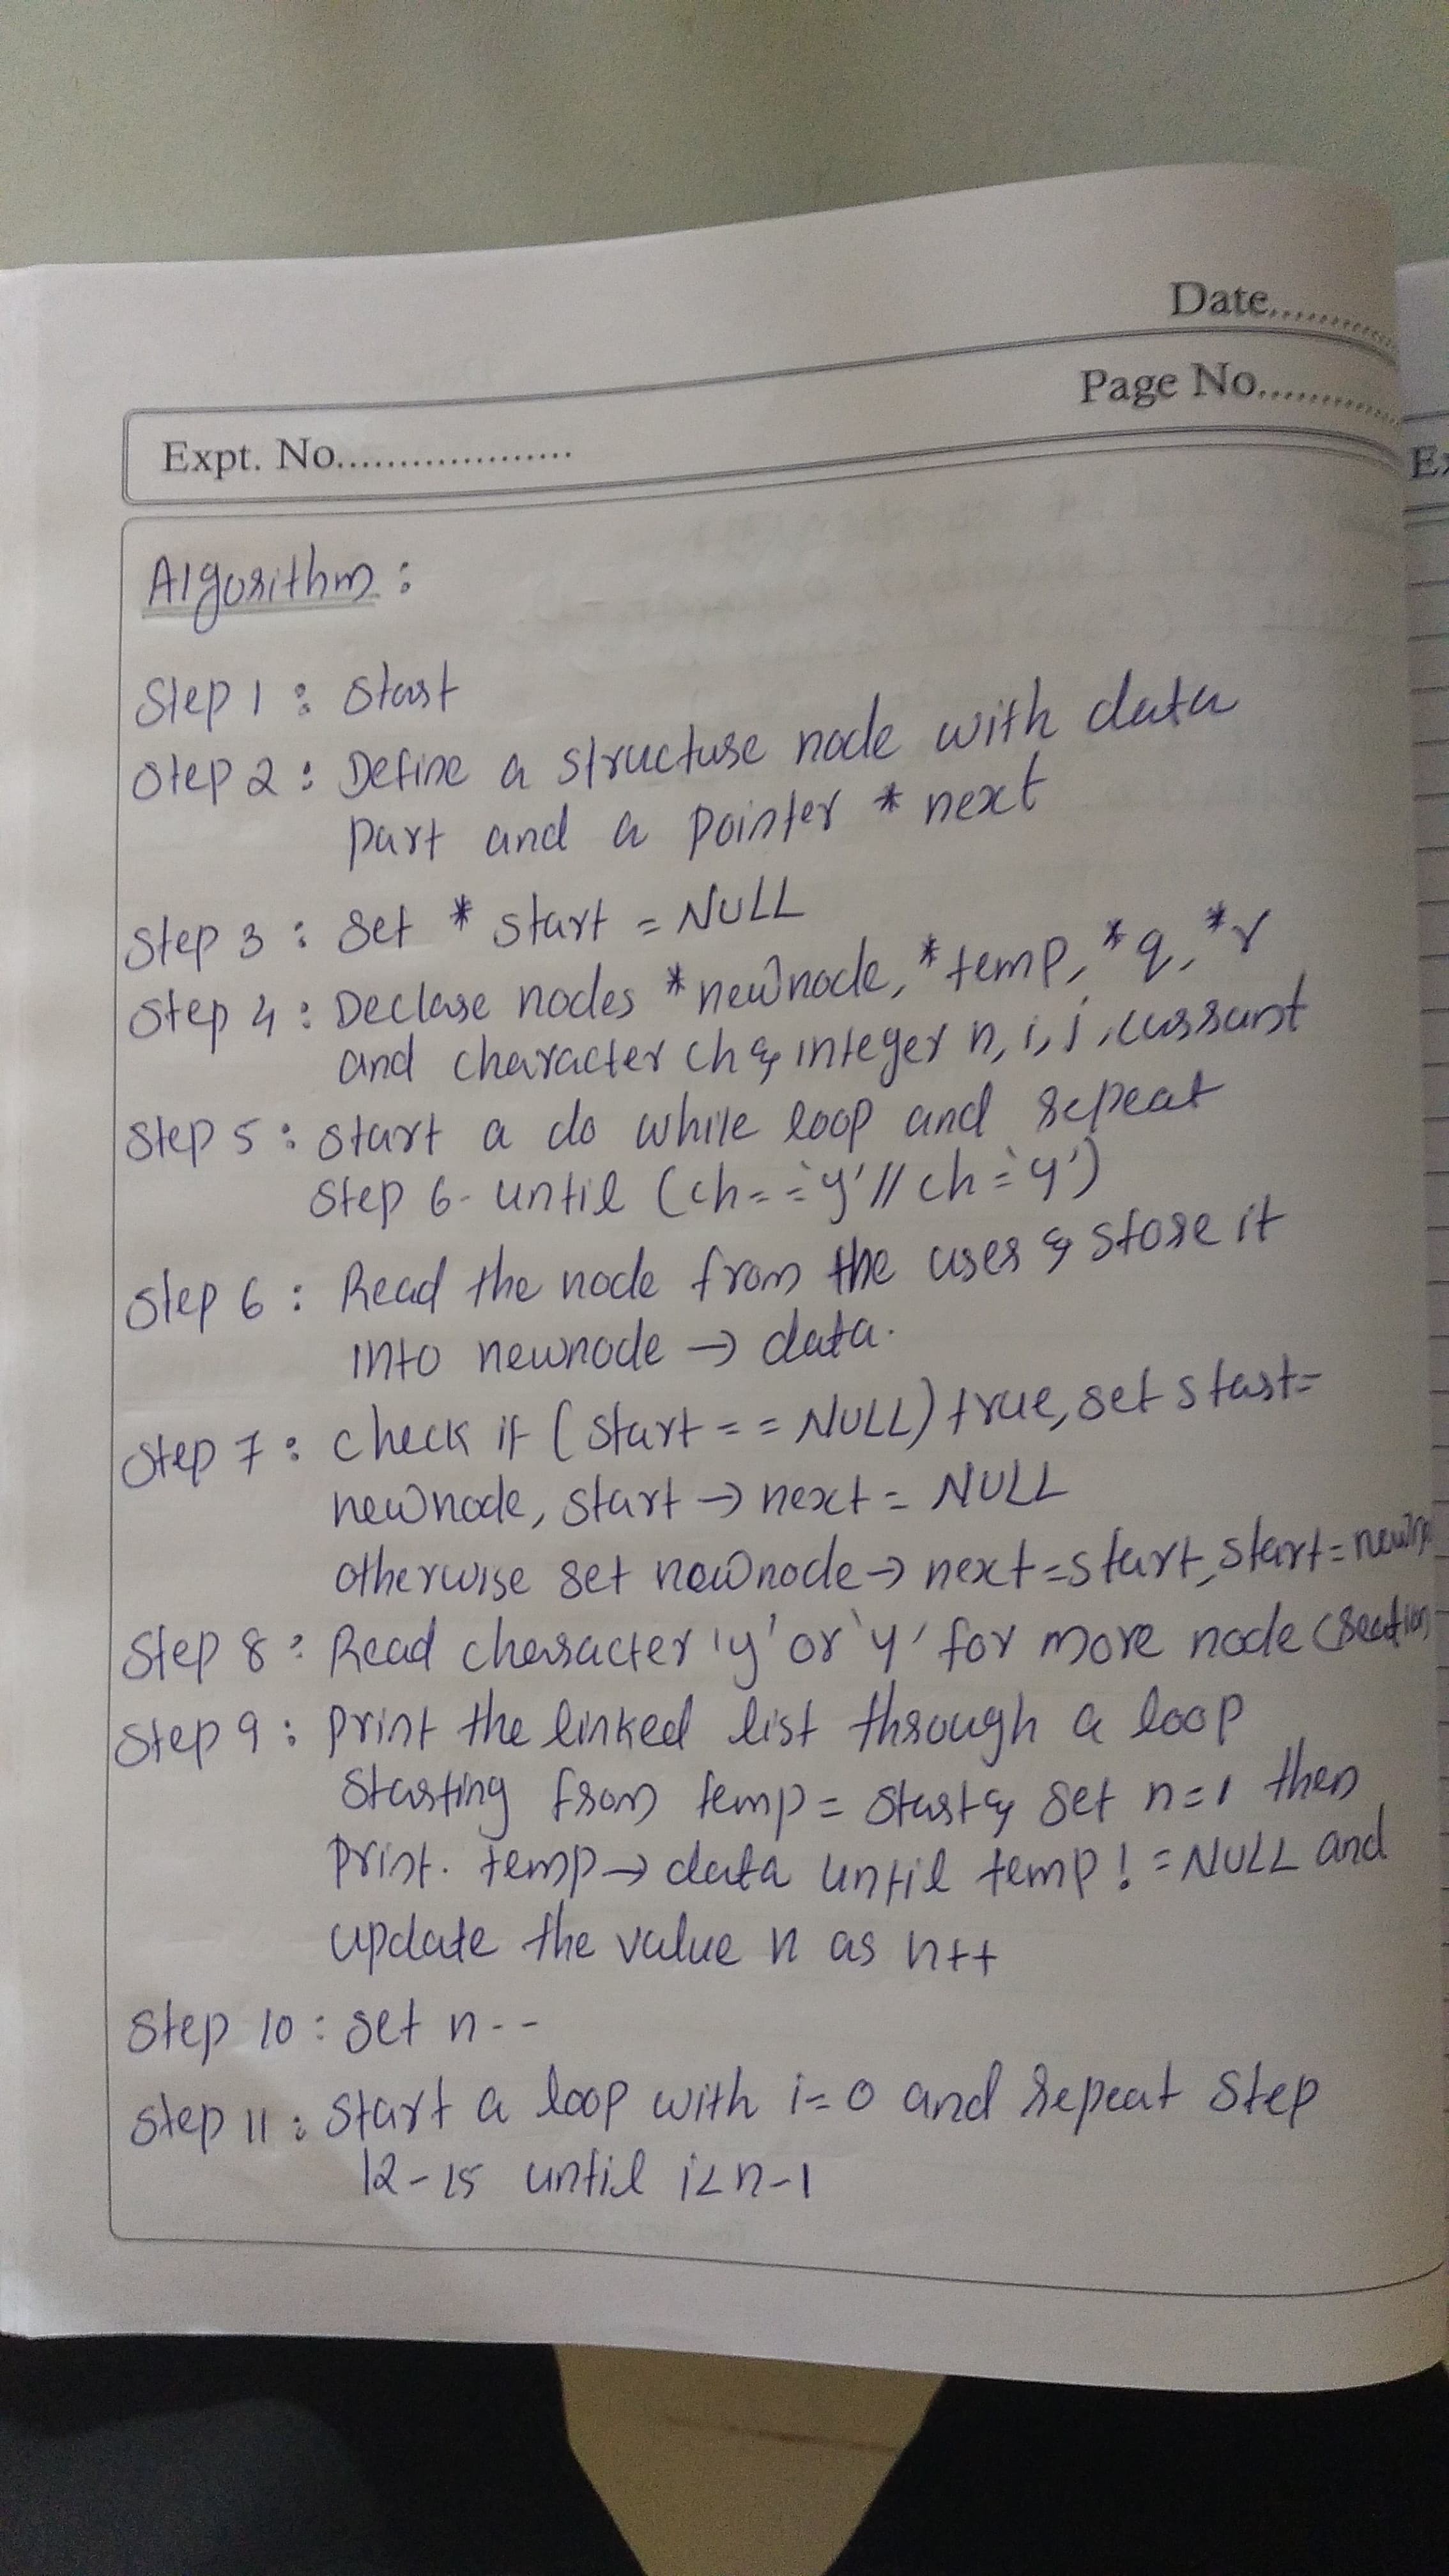 Date............
Page No............
Expt. No....................
Ex
Algorithm :
Step 1 : Start
Step 2 : Define a structure node with data
part and a pointer * next
Step 3 : Set * start = NULL
Step 4 : Declare nodes *newnode, *temp, *q, *r
and character ch & integer n, i, j, curra​nt
Step 5 : start a do while loop and repeat
Step 6- until (ch=='y'//ch='y')
Step 6 : Read the node from the user & store it
into newnode → data.
Step 7 : check if (start == NULL) true, set start=
newnode, start → next = NULL
otherwise set newnode → next=start, start=newn
Step 8 : Read character 'y' or 'y' for more node creation
Step 9 : print the linked list through a loop
starting from temp = start & set n=1 then
print. temp → data until temp != NULL and
update the value n as n++
Step 10 : set n--
Step 11 : start a loop with i=0 and repeat Step
12-15 until i<n-1